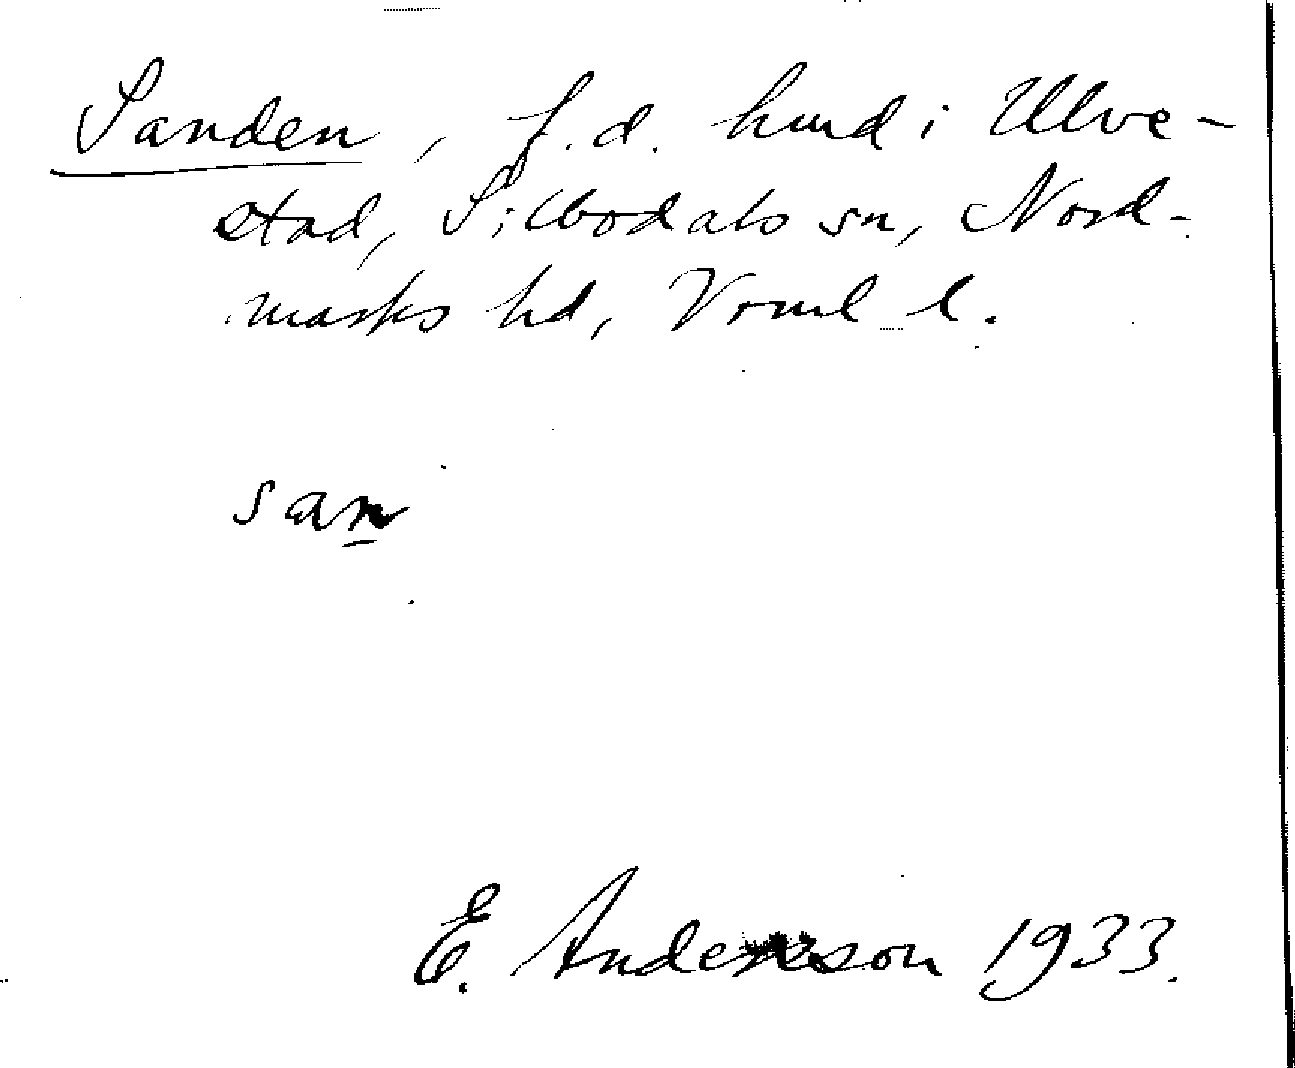 Sanden, f.d. hmd i Ulve-
stad, Silbodals sn, Nord-
marks hd, Vrml l.
san
E. Andersson 1933.